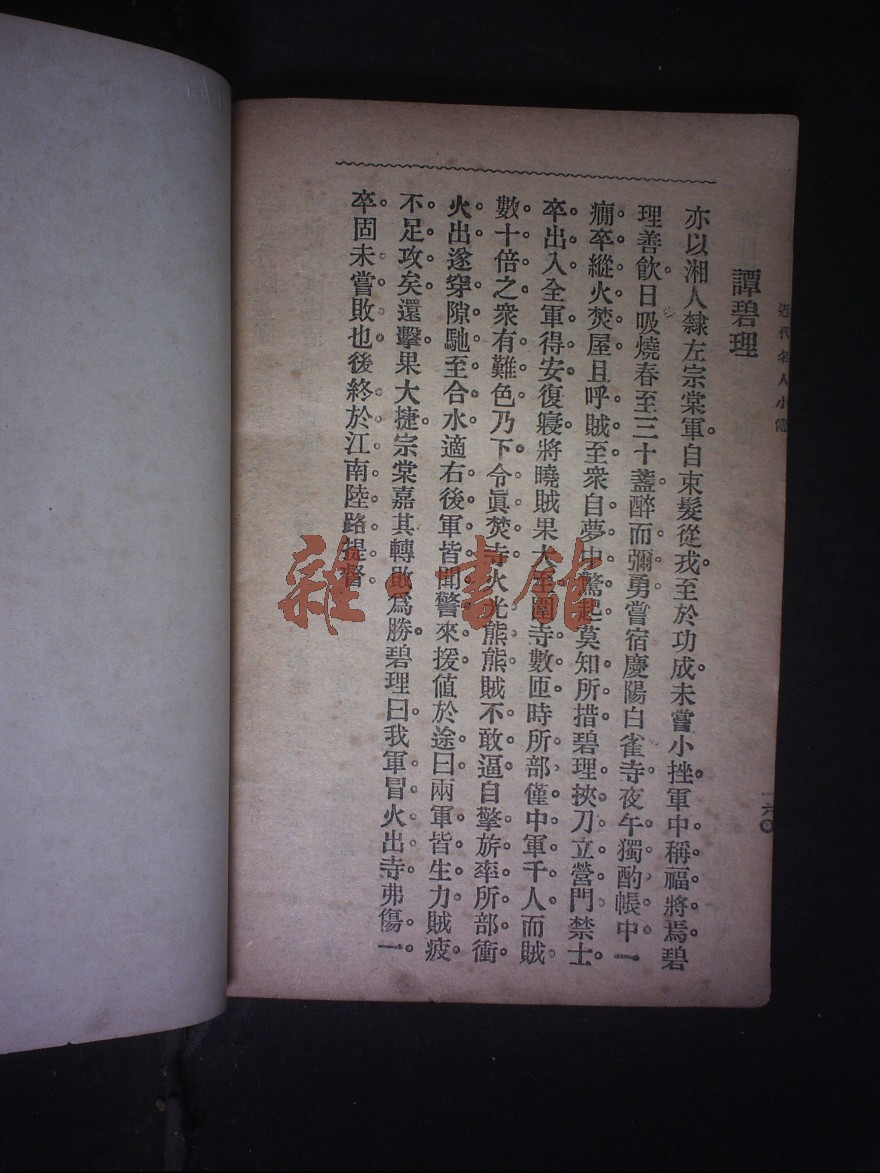 近代名人小傳
一六〇
譚碧理
亦以湘人隸左宗棠軍。自束髮從戎至於功成未嘗小挫。軍中稱福將焉。碧
理善飲日吸燒春至三十盞。醉而彌勇。嘗宿慶陽白雀寺。夜午獨酌帳中。一
癇卒縱火焚屋。且呼賊至。衆自夢中驚起莫知所措。碧理挾刀立營門禁士
卒出入。全軍得安復寢。將曉賊果大至圍寺數匝。時所部僅中軍千人。而賊
數十倍之。衆有難色。乃下令眞焚寺。火光熊熊。賊不敢逼。自擎旂率所部衝
火出。遂穿隙馳至合水。適右後軍皆聞警來援。値於途。曰兩軍皆生力賊疲
不足攻矣。還擊果大捷。宗棠嘉其轉敗爲勝。碧理曰我軍冒火出寺弗傷一
卒。固未嘗敗也。後終於江南陸路提督。
雜書館